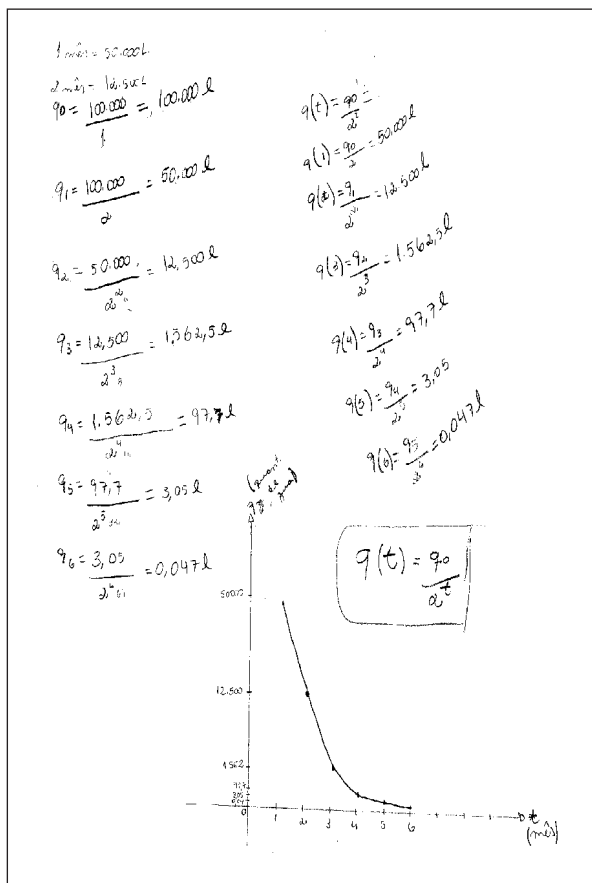 1 mês = 50.000L
2 mês = 12.500L
q0 = 100.000/1 = 100.000 l
q1 = 100.000/2 = 50.000 l
q2 = 50.000/2^2 = 12,500 l
q3 = 12,500/2^3 = 1.562,5 l
q4 = 1.562,5/2^4 = 97,7 l
q5 = 97,7/2^5 = 3,05 l
q6 = 3,05/2^6 = 0,047 l
q(t) = q0/2^t =
q(1) = q0/2 = 50.000 l
q(2) = q1/2^2 = 12.500 l
q(3) = q2/2^3 = 1.562,5 l
q(4) = q3/2^4 = 97,7 l
q(5) = q4/2^5 = 3,05
q(6) = q5/2^6 = 0,047 l
q(t) = q0/2^t
(quant. de
água)
12.500
1.562
1 2 3 4 5 6
t
(mês)